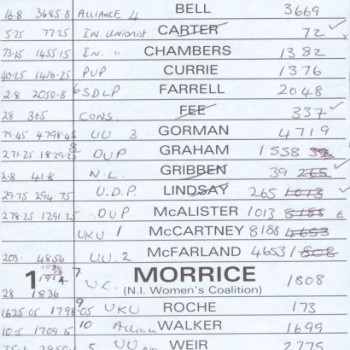 16.8 3685.8 ALLIANCE 4 BELL 3669
5.25 77.25 IN. Unionist CARTER 72 ✓
73.15 1455.15 IN. " CHAMBERS 1382
40.25 1416.25 PUP CURRIE 1376
2.8 2050.8 6 SDLP FARRELL 2048
28 365 CONS. FEE 337 ✓
79.45 4798.45 UU 3 GORMAN 4719
271.25 1829.25 8 DUP GRAHAM 1558
2.8 41.8 N.L. GRIBBEN 39 265 ✓
29.75 294.75 U.D.P. LINDSAY 265 1013 ✓
278.25 1291.25 DUP McALISTER 1013 8188
UKU 1 McCARTNEY 8188 4653
203. 4856 UU. 2 McFARLAND 4653 1808
1 7 MORRICE 1808
(N.I. Women's Coalition)
28 1836
1625.05 1798.05 UKU ROCHE 173
10.5 1709.5 10 Alliance WALKER 1699
5 UU WEIR 2775